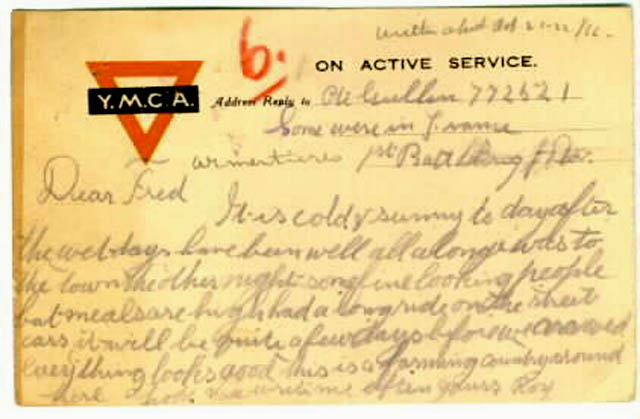 6.
Oct 21-22/16.
ON ACTIVE SERVICE.
Y.M.C.A.
Address Reply to Pte Cullen 772521
Some were in France
armentieres 1st Batt
Dear Fred
It is cold & sunny to day after
the wet days have been well all along i was to
the town the other night some fine looking people
but meals are high had a long ride on the street
cars it will be quite a few days before we
everything looks good this is a farming country around
here write me often yours Roy